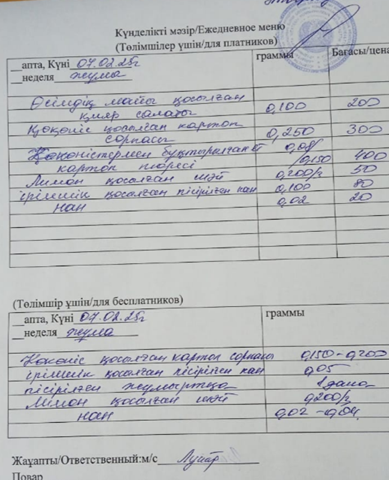 Күнделікті мәзір/Ежедневное меню
(Төлімшілер үшін/для платников)
__апта, Күні 07.02.25г граммы Бағасы/цена
__неделя жұма
Өсімдік майы қосылған
қияр салаты 0,100 200
Көкөніс қосылған картоп
сорпасы 0,250 300
Көкөністермен бұқтырылған 0,08/
картоп пюресі 0,150 400
Лимон қосылған шәй 0,200/2 50
ірімшік қосылған пісірілген нан 0,100 80
нан 0,02 20
(Төлімшір үшін/для бесплатников)
__апта, Күні 07.02.25г граммы
__неделя жұма
Көкөніс қосылған картоп сорпасы 0,150-0,200
ірімшік қосылған пісірілген нан 0,05
пісірілген жұмыртқа 1 дана
Лимон қосылған шәй 0,200/2
нан 0,02-0,04
Жауапты/Ответственный:м/с
Повар